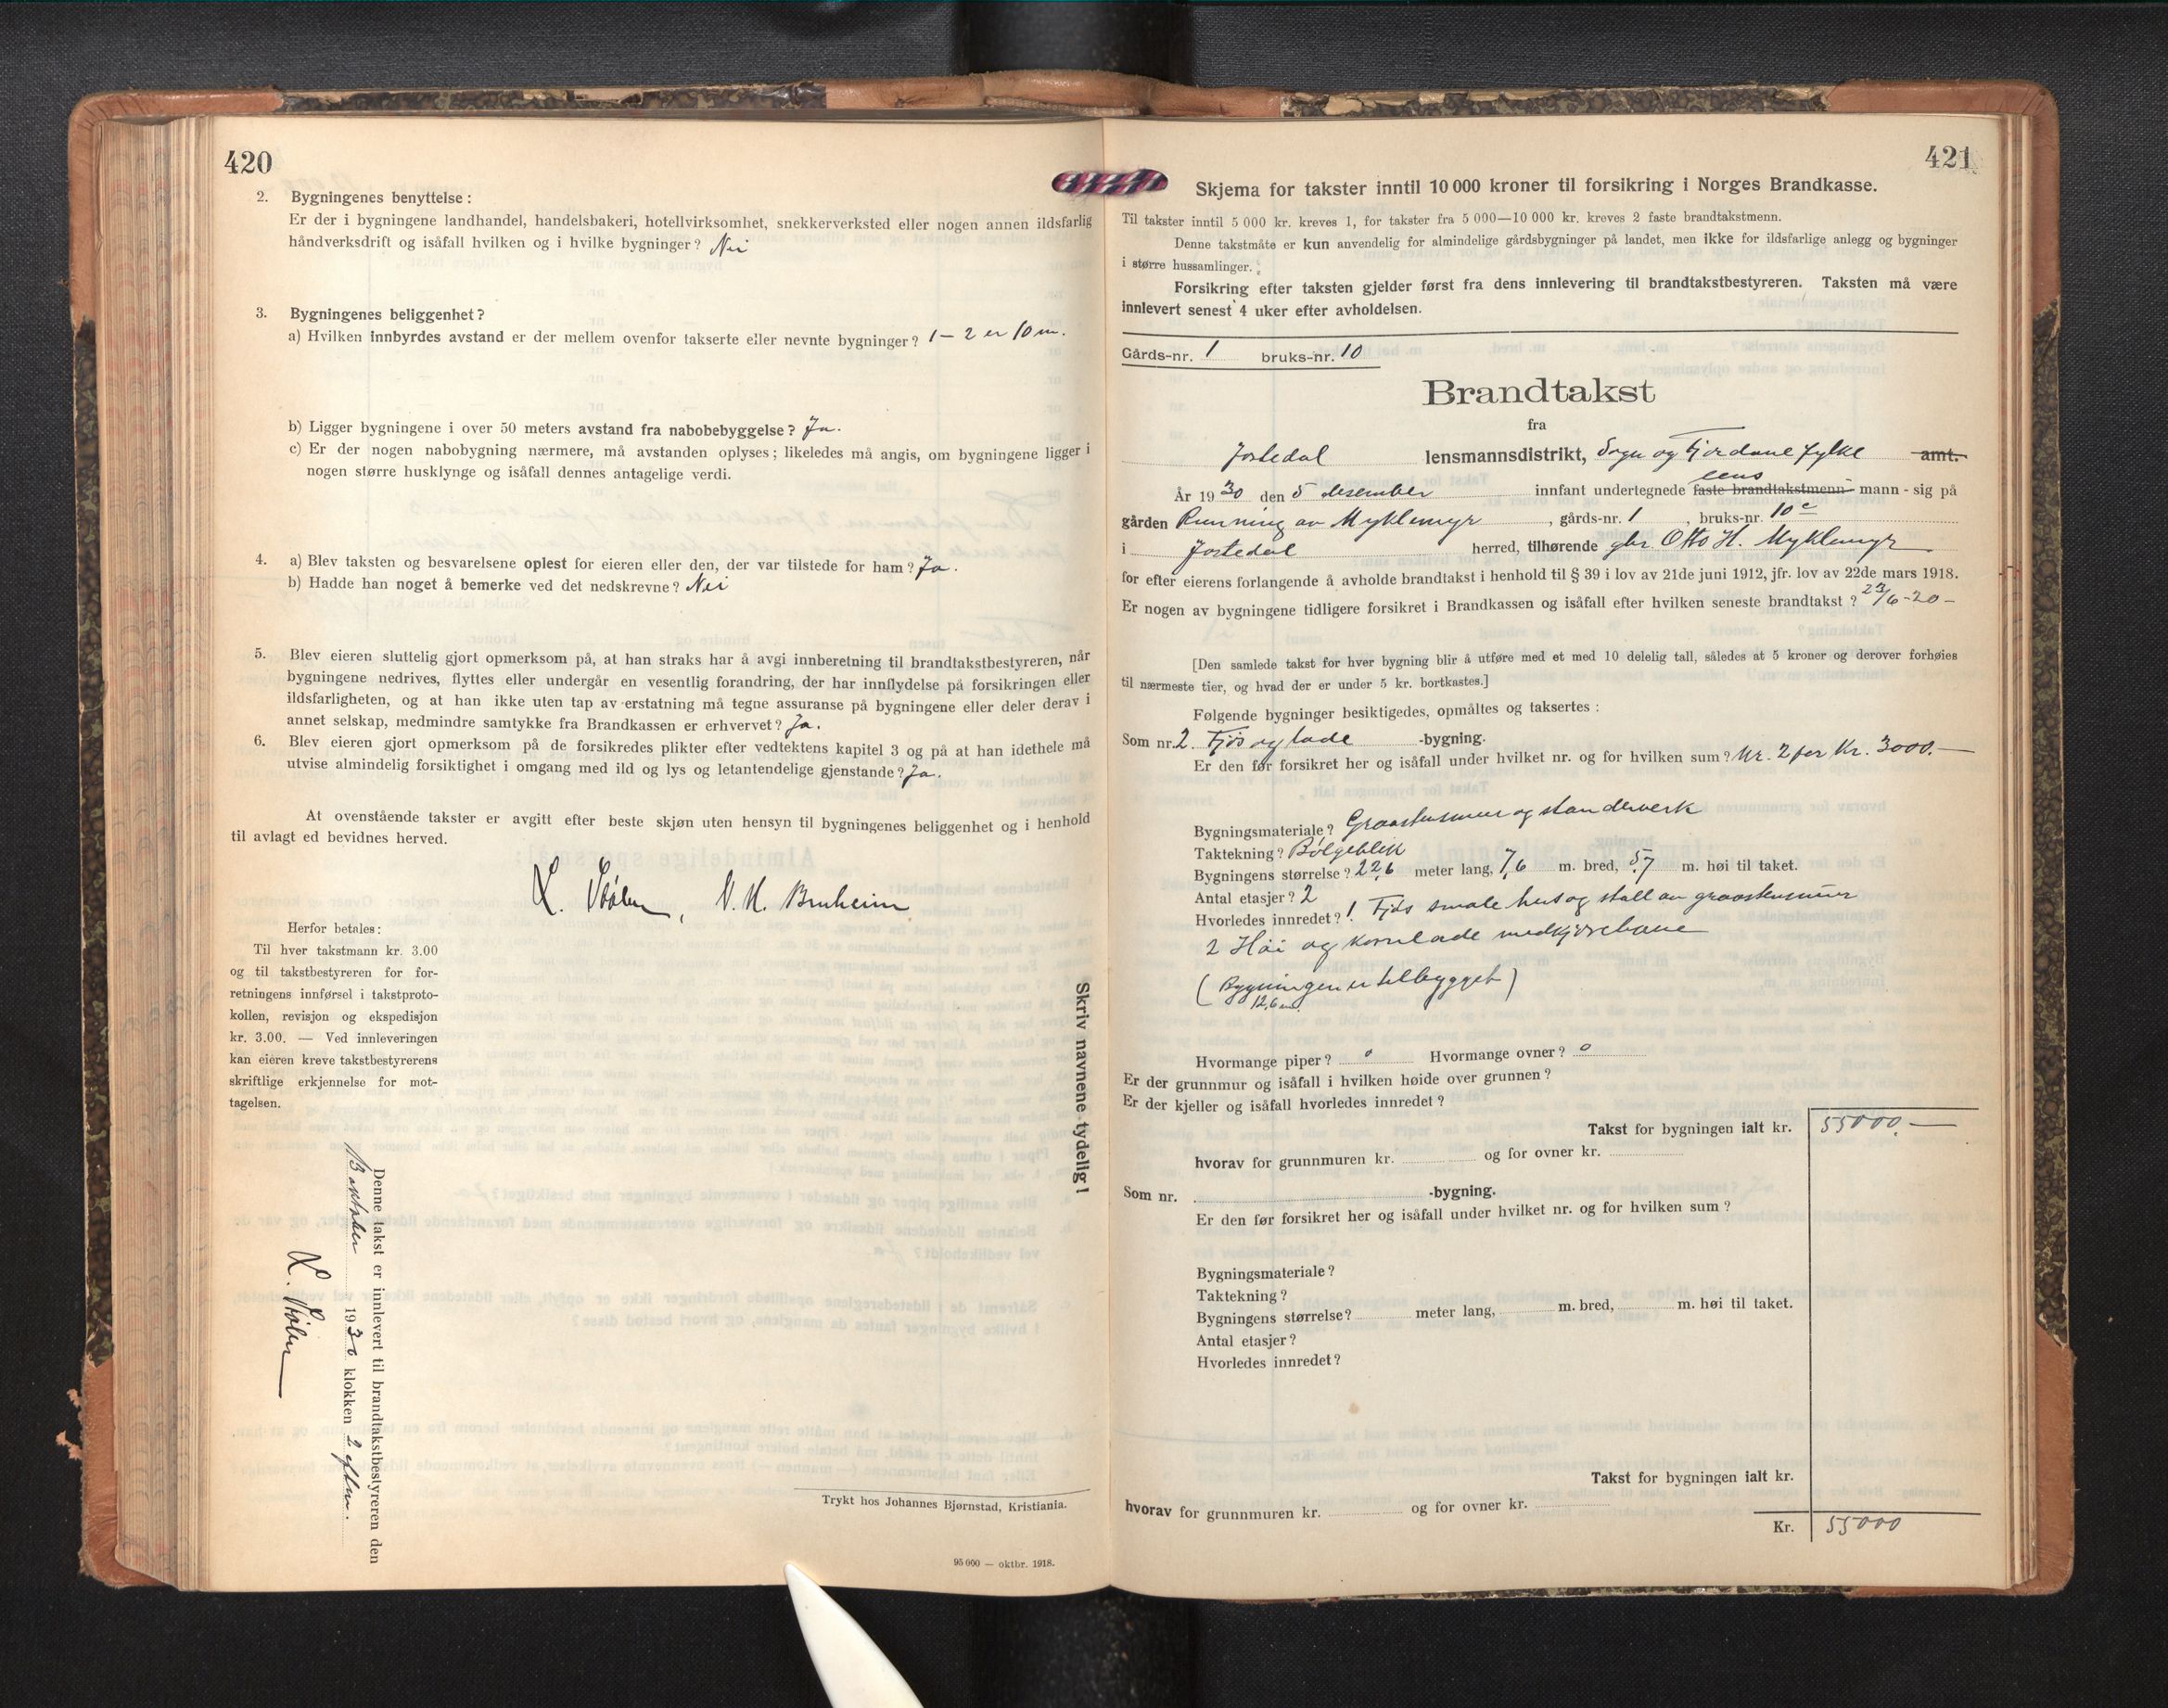 420
2. Bygningenes benyttelse:
Er der i bygningene landhandel, handelsbakeri, hotellvirksomhet, snekkerverksted eller nogen annen ildsfarlig
håndverksdrift og isåfall hvilken og i hvilke bygninger? Nei
3. Bygningenes beliggenhet?
a) Hvilken innbyrdes avstand er der mellem ovenfor takserte eller nevnte bygninger? 1 – 2 er 10 m.
b) Ligger bygningene i over 50 meters avstand fra nabobebyggelse? Ja.
c) Er der nogen nabobygning nærmere, må avstanden oplyses; likeledes må angis, om bygningene ligger i
nogen større husklynge og isåfall dennes antagelige verdi.
4. a) Blev taksten og besvarelsene oplest for eieren eller den, der var tilstede for ham? Ja.
b) Hadde han noget å bemerke ved det nedskrevne? Nei
5. Blev eieren sluttelig gjort opmerksom på, at han straks har å avgi innberetning til brandtakstbestyreren, når
bygningene nedrives, flyttes eller undergår en vesentlig forandring, der har innflydelse på forsikringen eller
ildsfarligheten, og at han ikke uten tap av erstatning må tegne assuranse på bygningene eller deler derav i
annet selskap, medmindre samtykke fra Brandkassen er erhvervet? Ja.
6. Blev eieren gjort opmerksom på de forsikredes plikter efter vedtektens kapitel 3 og på at han idethele må
utvise almindelig forsiktighet i omgang med ild og lys og letantendelige gjenstande? Ja.
At ovenstående takster er avgitt efter beste skjøn uten hensyn til bygningenes beliggenhet og i henhold
til avlagt ed bevidnes herved.
L. Stölen, N. H. Bruheim
Herfor betales:
Til hver takstmann kr. 3.00
og til takstbestyreren for for-
retningens innførsel i takstproto-
kollen, revisjon og ekspedisjon
kr. 3.00. — Ved innleveringen
kan eieren kreve takstbestyrerens
skriftlige erkjennelse for mot-
tagelsen.
Skriv navnene tydelig!
Denne takst er innlevert til brandtakstbestyreren den
1930 klokken 2 eftm.
L. Stölen
Trykt hos Johannes Bjørnstad, Kristiania.
95 000 — oktbr. 1918.
421
Skjema for takster inntil 10 000 kroner til forsikring i Norges Brandkasse.
Til takster inntil 5 000 kr. kreves 1, for takster fra 5 000—10 000 kr. kreves 2 faste brandtakstmenn.
Denne takstmåte er kun anvendelig for almindelige gårdsbygninger på landet, men ikke for ildsfarlige anlegg og bygninger
i større hussamlinger.
Forsikring efter taksten gjelder først fra dens innlevering til brandtakstbestyreren. Taksten må være
innlevert senest 4 uker efter avholdelsen.
Gårds-nr. 1 bruks-nr. 10
Brandtakst
fra
Jostedal lensmannsdistrikt, Sogn og Fjordane fylke amt.
År 1930 den 5 desember innfant undertegnede faste brandtakstmenn lens mann - sig på
gården Running av Myklemyr, gårds-nr. 1, bruks-nr. 10 c
i Jostedal herred, tilhørende gbr. Otto H. Myklemyr
for efter eierens forlangende å avholde brandtakst i henhold til § 39 i lov av 21de juni 1912, jfr. lov av 22de mars 1918.
Er nogen av bygningene tidligere forsikret i Brandkassen og isåfall efter hvilken seneste brandtakst? 23/6-20 –
[Den samlede takst for hver bygning blir å utføre med et med 10 delelig tall, således at 5 kroner og derover forhøies
til nærmeste tier, og hvad der er under 5 kr. bortkastes.]
Følgende bygninger besiktigedes, opmåltes og taksertes:
Som nr. 2. Fjös og lade -bygning.
Er den før forsikret her og isåfall under hvilket nr. og for hvilken sum? Nr. 2 for Kr. 3000.–
Bygningsmateriale? Graastensmur og standerverk
Taktekning? Bølgeblik
Bygningens størrelse? 22,6 meter lang, 7,6 m. bred, 5,7 m. høi til taket.
Antal etasjer? 2
Hvorledes innredet? 1. Fjös smale hus og stall av graastensmur
2 Höi og kornlade med kjörebane
(Bygningen er tilbygget)
12,6 m.
Hvormange piper? 0 Hvormange ovner? 0
Er der grunnmur og isåfall i hvilken høide over grunnen?
Er der kjeller og isåfall hvorledes innredet?
Takst for bygningen ialt kr. 55000.–
hvorav for grunnmuren kr. og for ovner kr.
Som nr. -bygning.
Er den før forsikret her og isåfall under hvilket nr. og for hvilken sum?
Bygningsmateriale?
Taktekning?
Bygningens størrelse? meter lang, m. bred, m. høi til taket.
Antal etasjer?
Hvorledes innredet?
Takst for bygningen ialt kr.
hvorav for grunnmuren kr. og for ovner kr.
Kr. 55000